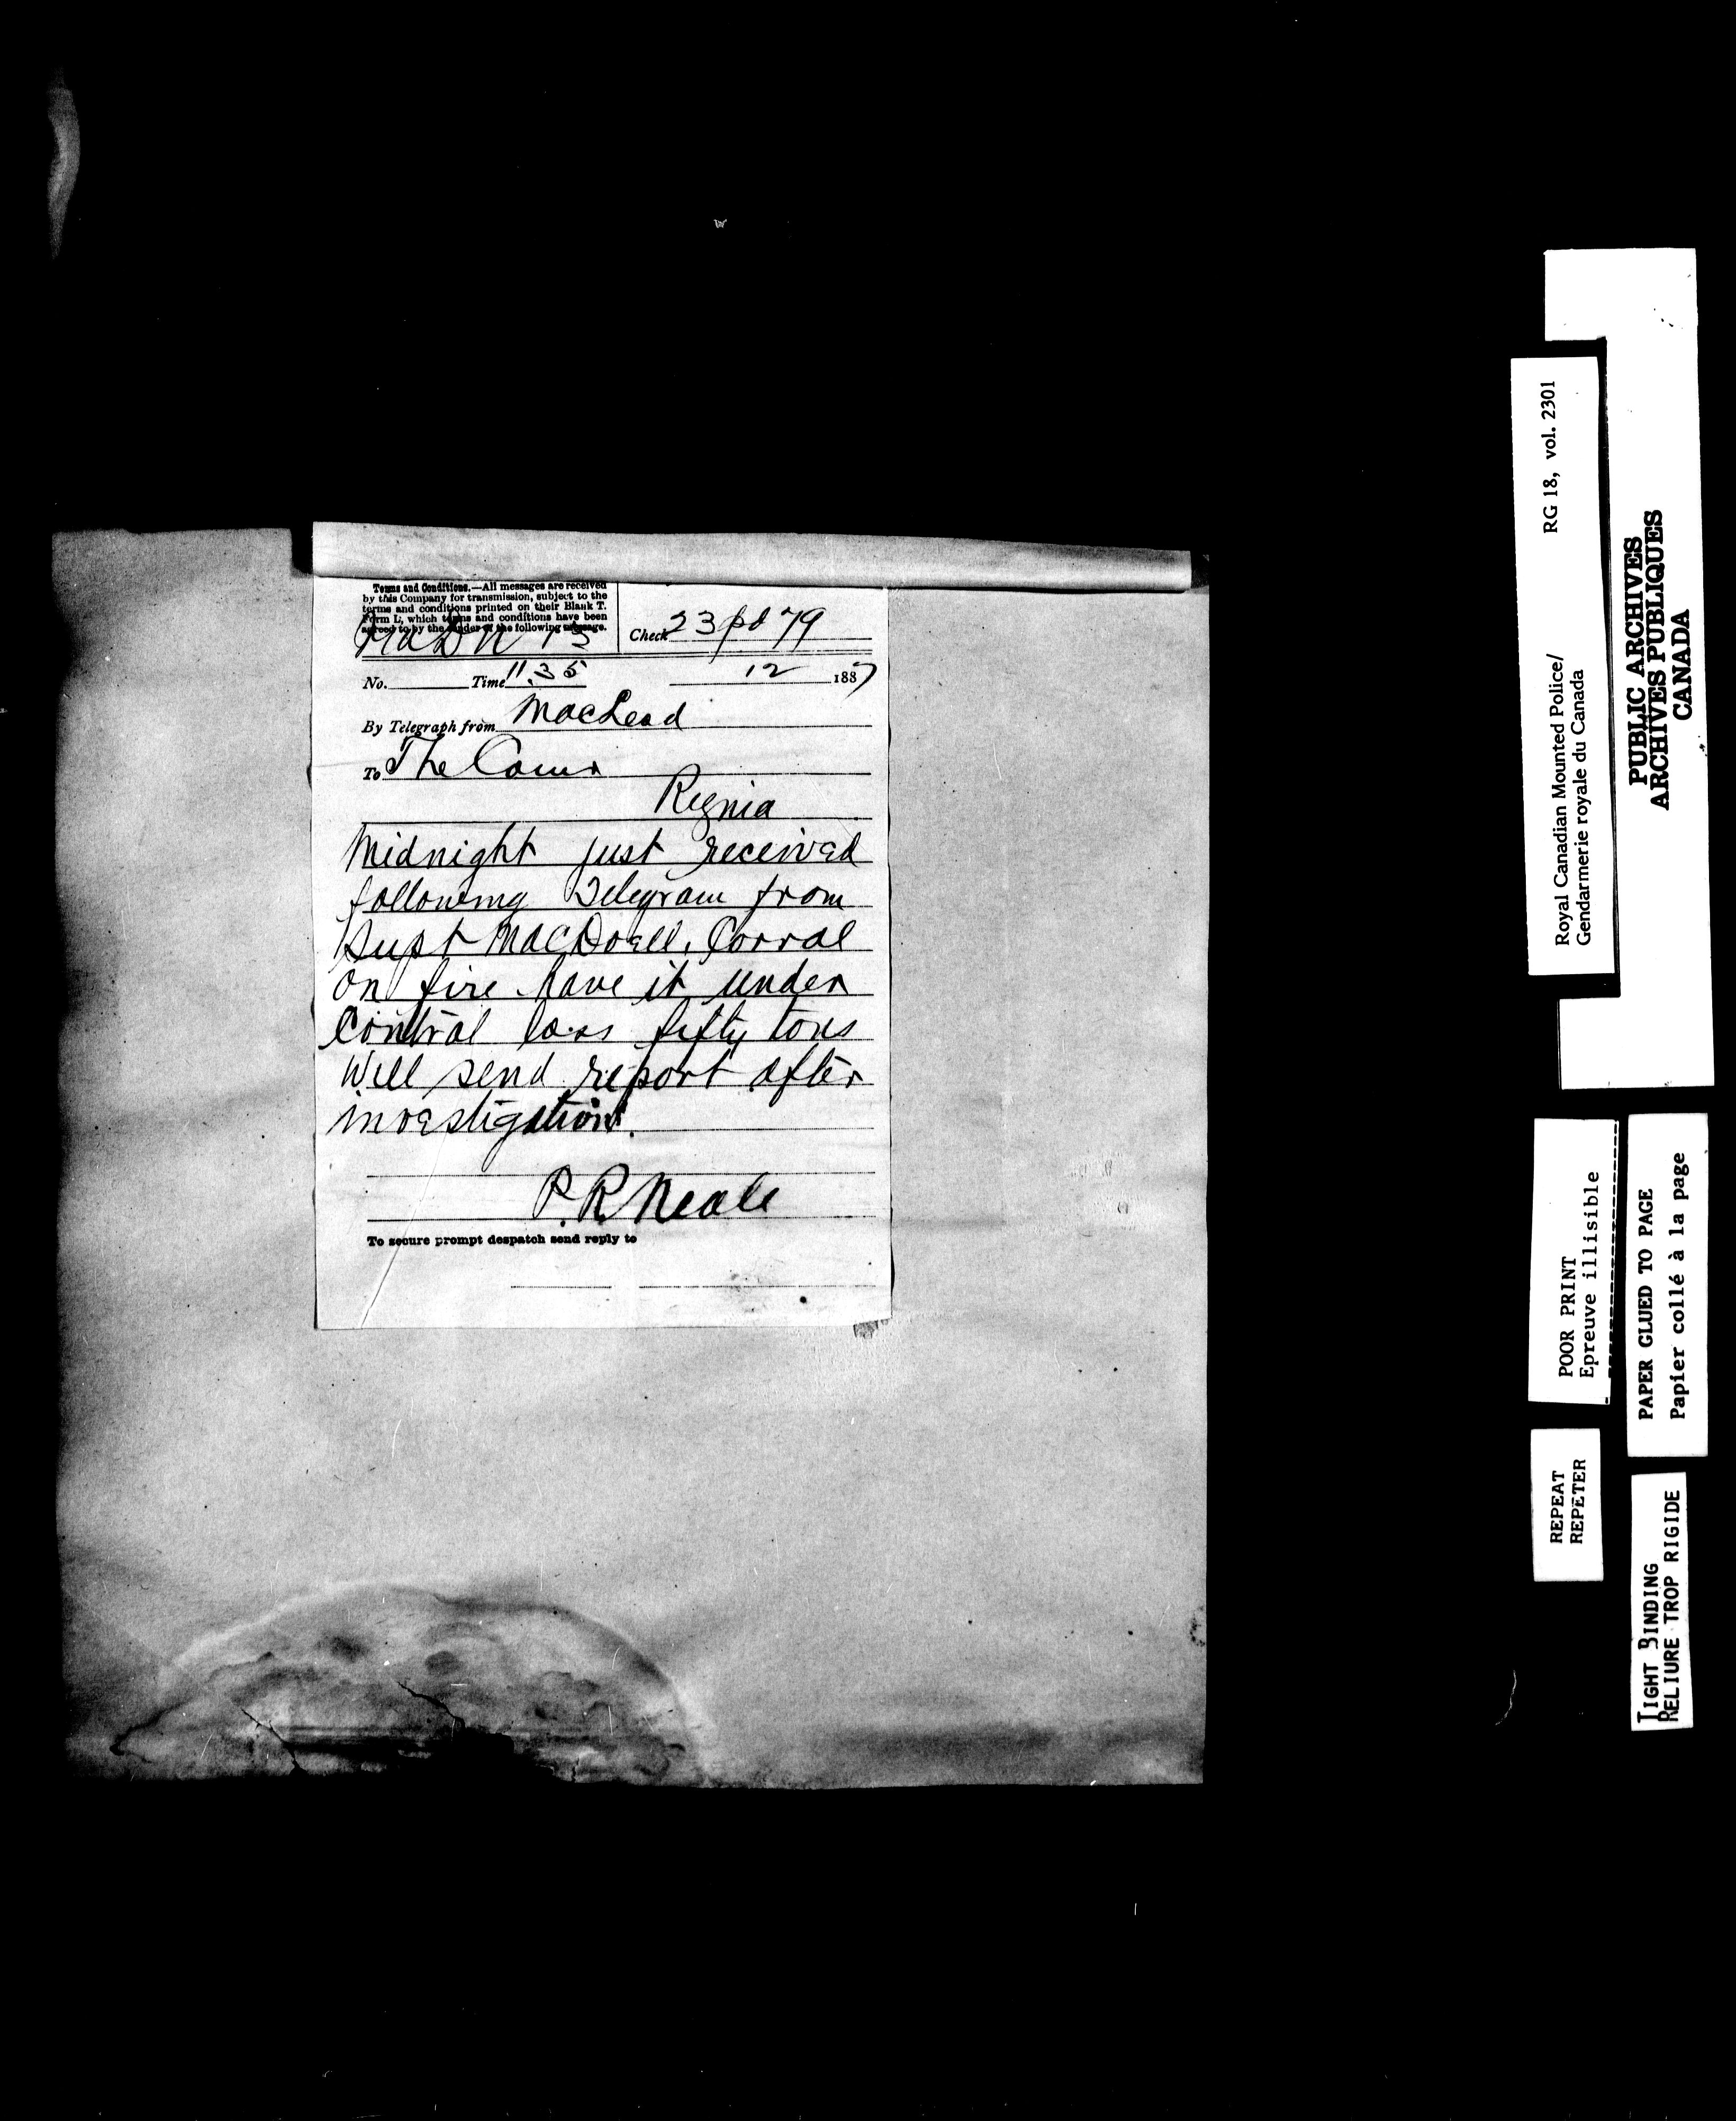 Terms and Conditions.—All messages are received
by this Company for transmission, subject to the
terms and conditions printed on their Blank T.
Form L, which terms and conditions have been
agreed to by the sender of the following message.
Check 23 pd 79
No. Time 11.35 12 1887
By Telegraph from MacLeod
To The Comr
Regnia
Midnight just received
following Telegram from
Supt MacDoell. Corral
on fire have it under
Control loss fifty tons
Will send report after
investigation.
P. R. Neale
To secure prompt despatch send reply to
RG 18, vol. 2301
Royal Canadian Mounted Police/
Gendarmerie royale du Canada
PUBLIC ARCHIVES
ARCHIVES PUBLIQUES
CANADA
POOR PRINT
Epreuve illisible
PAPER GLUED TO PAGE
Papier collé à la page
REPEAT
REPETER
TIGHT BINDING
RELIURE TROP RIGIDE